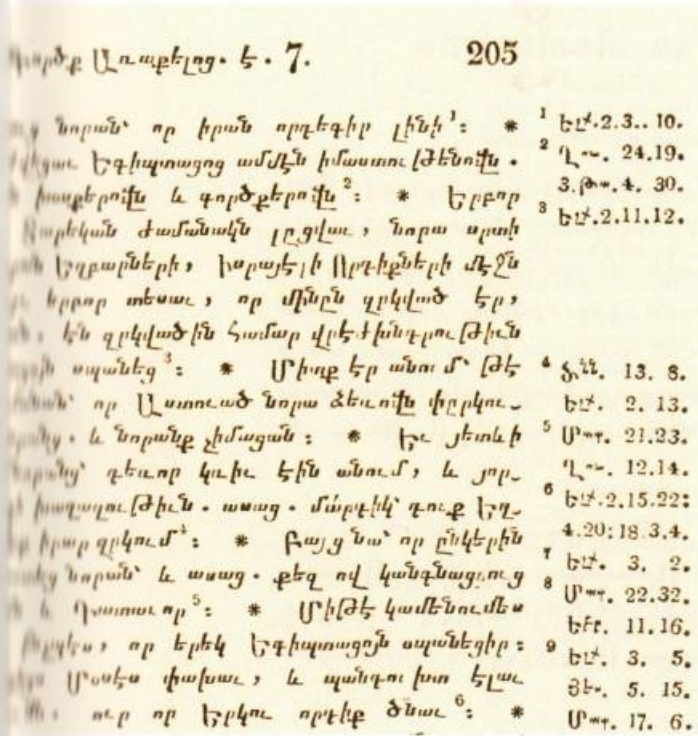 Գործք Առաքելոց. է. 7. 205
նորան՝ որ իրան որդեգիր լինի¹։ *
Եգիպտացոց ամմէն իմաստու թէնովն.
խօսքերովն և գործքերովն²։ * Երբոր
Քարեկան ժամանակն լըցվաւ, նորա սրտի
Եղբարների, Իսրայէլի Որդիքների մէջն
երբոր տեսաւ, որ մինըն զրկված էր,
էն զրկվածին համար վրէժխնդրութիւն
սպանեց³։ * Միտք էր անում՝ թէ
որ Աստուած նորա ձեռովն փըրկու֊
և նորանք չիմացան։ * Եւ յետևի
դեռոր կռիւ էին անում, և յոր֊
խաղաղութիւն. ասաց. մարդիկ՝ դուք Եղ֊
իրար զրկում⁴։ * Բայց նա՝ որ ընկերին
նորան՝ և ասաց. քեզ ով կանգնացուց
և Դատաւոր⁵։ * Միթէ կամենումես
որ երեկ Եգիպտացոյն սպանեցիր։
Մօսէս փախաւ, և պանդուխտ էլաւ
ուր որ Երկու որդիք ծնաւ⁶։ *
¹ Ել.2.3.. 10.
² Ղու. 24.19.
3.թա.4. 30.
³ Ել.2.11.12.
⁴ ծնն. 13. 8.
Ել. 2. 13.
⁵ Մատ. 21.23.
Ղու. 12.14.
⁶ Ել.2.15.22:
4.20:18.3.4.
⁷ Ել. 3. 2.
⁸ Մատ. 22.32.
Եբր. 11.16.
⁹ Ել. 3. 5.
Յես. 5. 15.
Մատ. 17. 6.